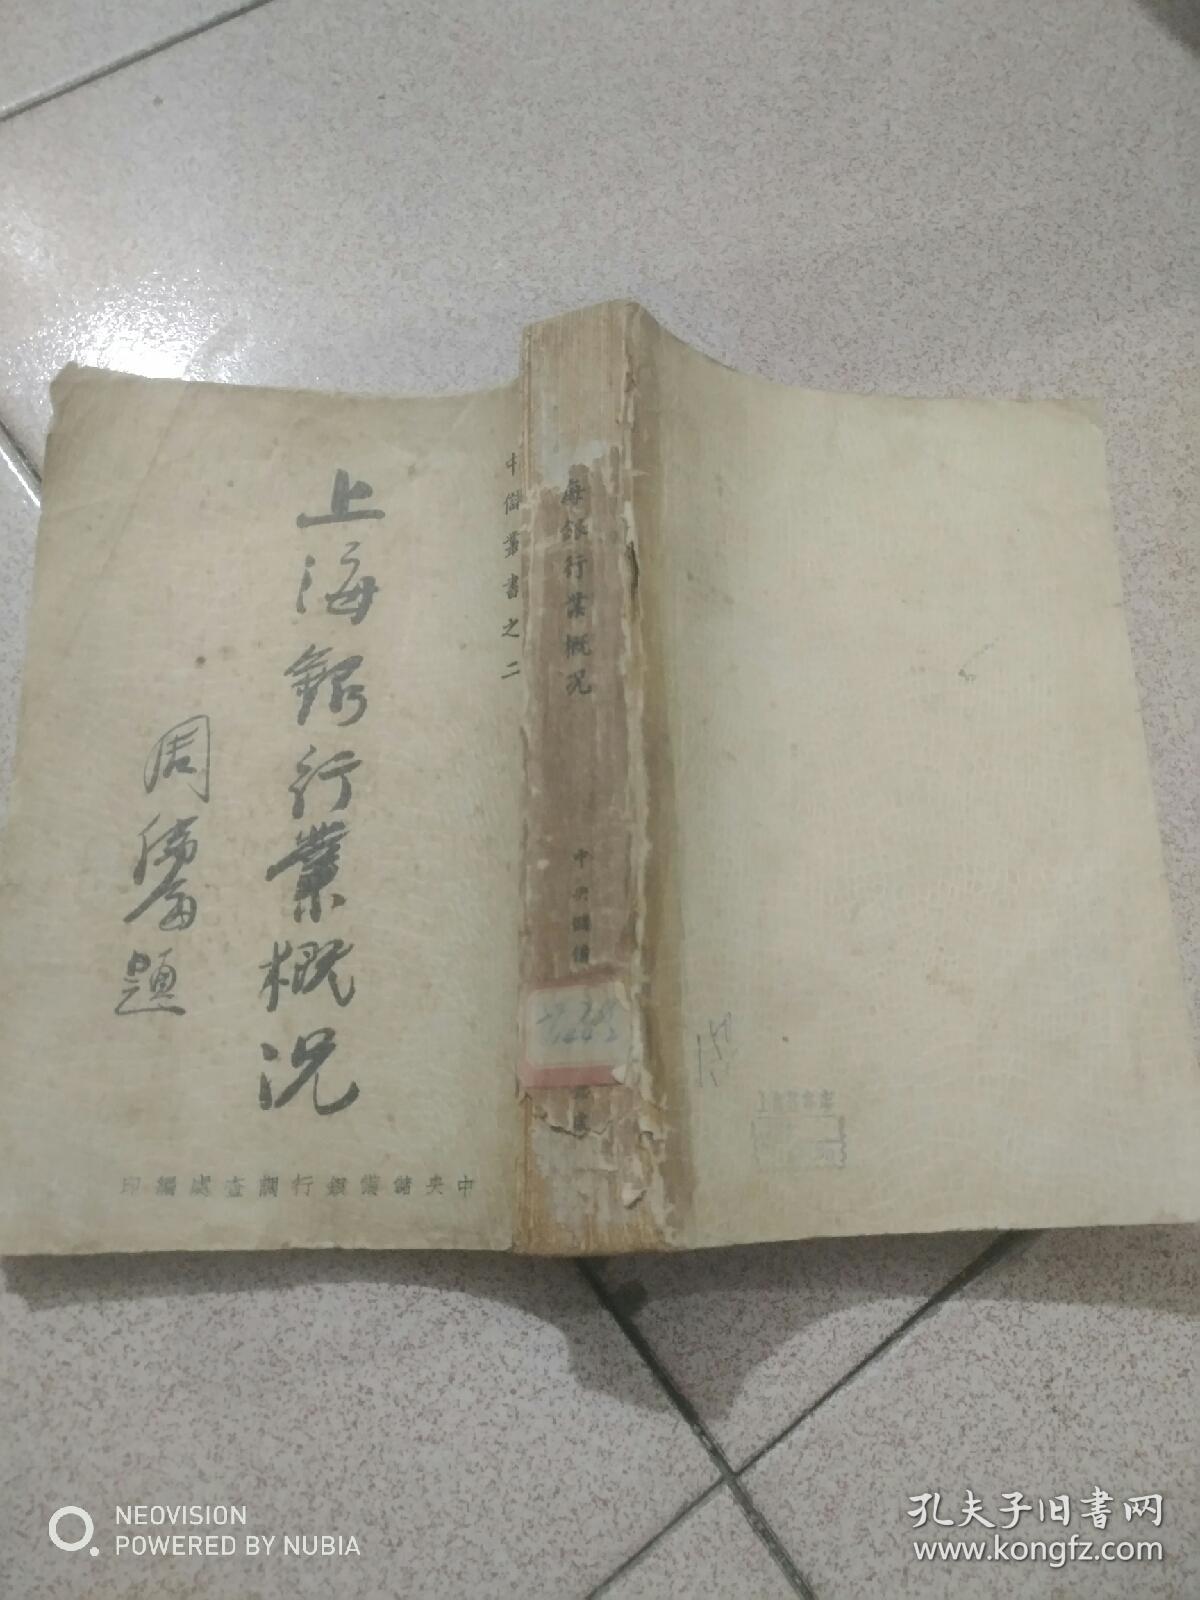 中儲叢書之二
上海銀行業概況
周佛海題
中央儲備銀行調查處編印
海銀行業概況
中央儲備
NEOVISION
POWERED BY NUBIA
孔夫子旧书网
www.kongfz.com